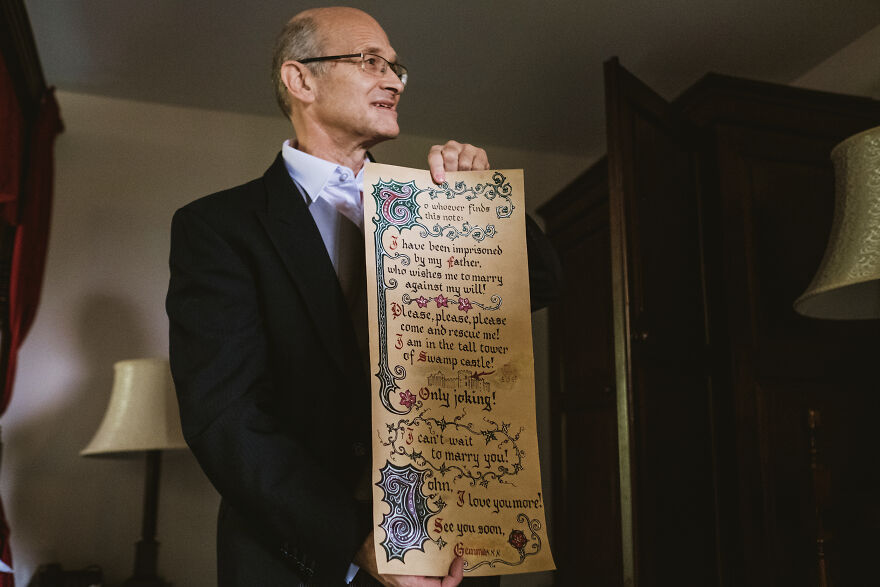 To whoever finds
this note:
I have been imprisoned
by my Father,
who wishes me to marry
against my will!
Please, please, please
come and rescue me!
I am in the tall tower
of Swamp castle!
Only joking!
I can't wait
to marry you!
John,
I love you more!
See you soon,
Gemma x x